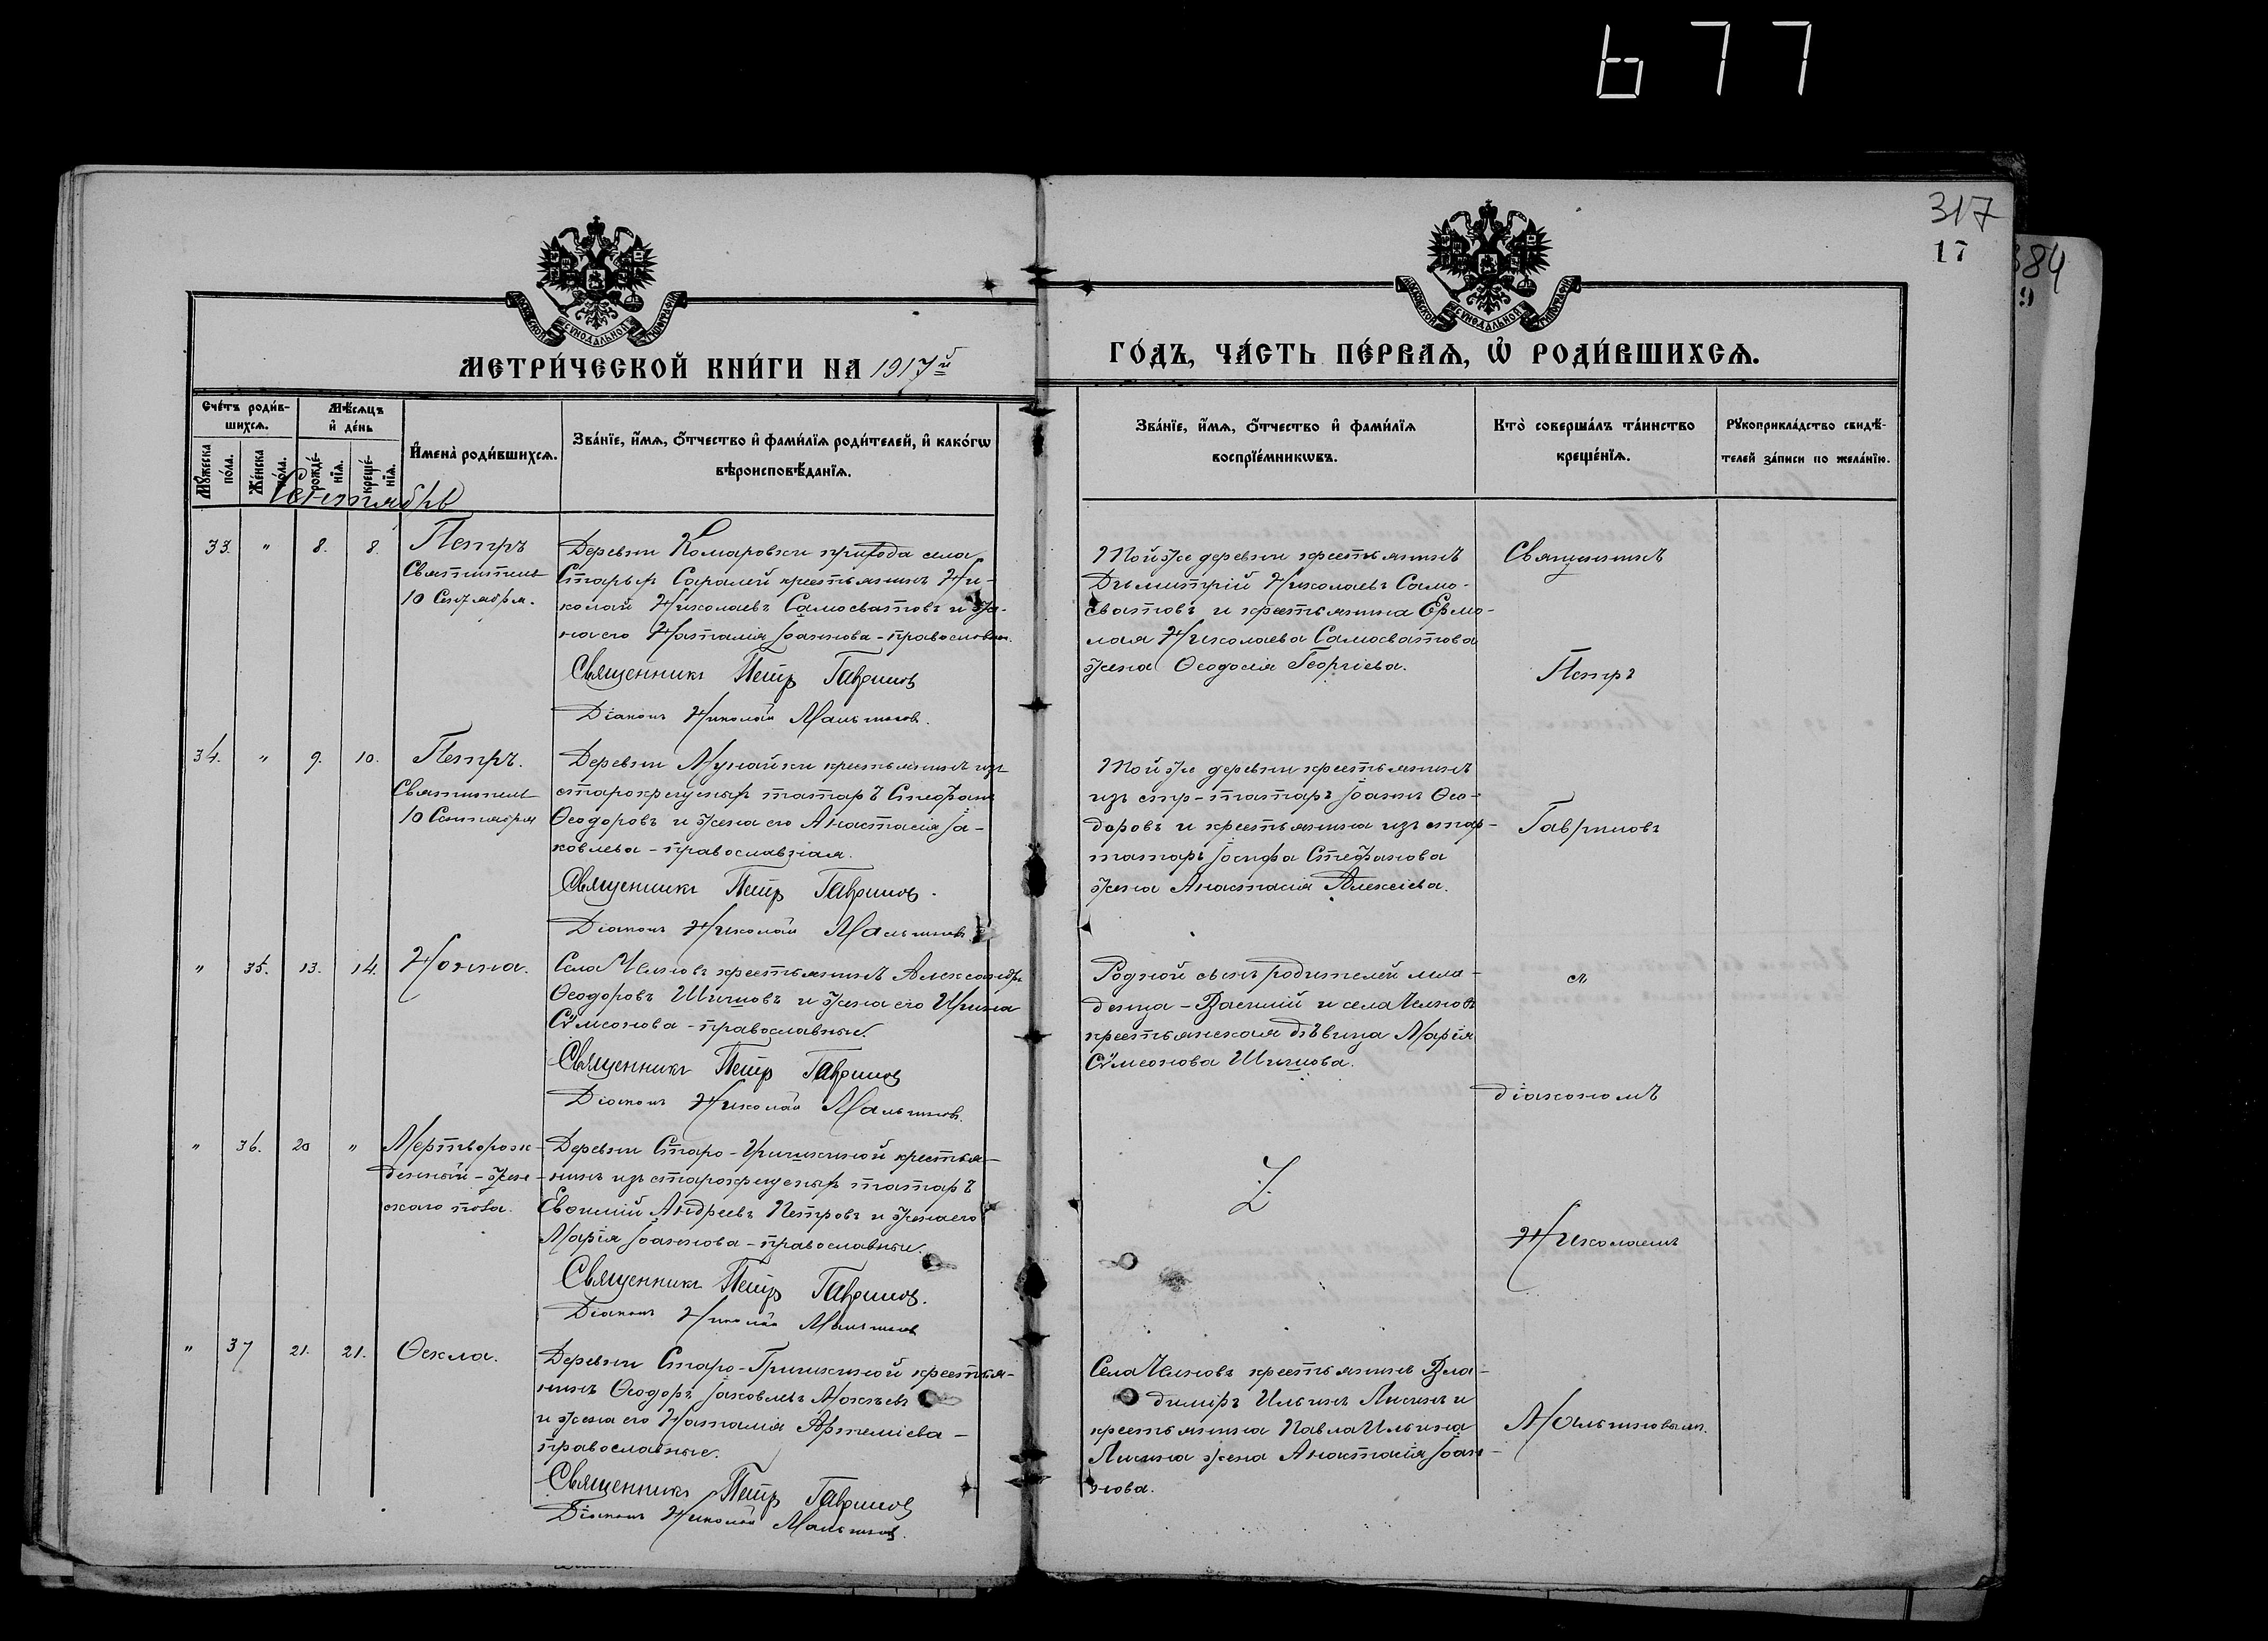 677
317
17
384
9
МОСКОВСКОЙ СУНОДАЛЬНОЙ ТИПОГРАФІИ
МОСКОВСКОЙ СУНОДАЛЬНОЙ ТИПОГРАФІИ
МЕТРИ́ЧЕСКОЙ КНИ́ГИ НА 1917й
ГО́ДЪ, ЧА́СТЬ ПЕ́РВАѦ, Ѡ҆ РОДИ́ВШИХСѦ.
Сче́тъ роди́в-
шихсѧ.
Мѣ́сѧцъ
и҆ де́нь
Мꙋ́жеска
по́ла.
Же́нска
по́ла.
рожде́-
нїѧ.
креще́-
нїѧ.
И҆мена̀ роди́вшихсѧ.
Зва́нїе, и҆́мѧ, о҆́тчество и҆ фами́лїѧ роди́телей, и҆ како́гѡ
вѣроисповѣ́данїѧ.
Зва́нїе, и҆́мѧ, о҆́тчество и҆ фами́лїѧ
воспрїе́мникѡвъ.
Кто̀ соверша́лъ та́инство
креще́нїѧ.
Рꙋкоприкла́дство свидѣ́-
телей за́писи по жела́нїю.
Сентябрь
33. " 8. 8. Петръ
Святитель
10 Сентября.
Деревни Комаровки прихода села
Старыхъ Саралей крестьянинъ Ни-
колай Николаевъ Самосватовъ и же-
на его Наталія Іоаннова - православн.
Священникъ Петръ Гавриловъ
Діаконъ Николай Мальшковъ.
Той же деревни крестьянинъ
Дѣмитрій Николаевъ Само-
сватовъ и крестьянина Ермо-
лая Николаева Самосватова
жена Ѳеодосія Георгіева.
Священникъ
Петръ
34. " 9. 10. Петръ.
Святитель
10 Сентября
Деревни Мунайки крестьянинъ изъ
старокрещеныхъ татаръ Стефанъ
Ѳеодоровъ и жена его Анастасія Іа-
ковлева - православная.
Священникъ Петръ Гавриловъ.
Діаконъ Николай
Той же деревни крестьянинъ
изъ стр-татаръ Іоаннъ Ѳео-
доровъ и крестьянина изъ стар-
татаръ Іосифа Стефанова
жена Анастасія Алексіева.
Гавриловъ
" 35. 13. 14. Нонна.
Села Челновъ крестьянинъ Александръ
Ѳеодоровъ и жена его Ирина
Сѷмеонова - православные.
Священникъ Петръ Гавриловъ
Діаконъ Николай
Родной сынъ родителей мла-
денца - Василій и села Челновъ
крестьянская дѣвица Марія
Сѷмеонова
съ
діакономъ
" 36. 20 " Мертворож-
денный - жен-
скаго пола.
Деревни Старо-Гришкиной крестья-
нинъ изъ старокрещеныхъ татаръ
Евѳимій Андреевъ Петровъ и жена его
Марія Іоаннова - православные.
Священникъ Петръ Гавриловъ.
Діаконъ Николай
Николаемъ
" 37 21. 21. Ѳекла.
Деревни Старо-Гришкиной крестья-
нинъ Ѳеодоръ Іаковлевъ
и жена его Наталія Артеміева -
православные.
Священникъ Петръ Гавриловъ
Діаконъ Николай
Села Челновъ крестьянинъ Вла-
диміръ Ильинъ Лисинъ и
крестьянина Павла Ильина
Лисина жена Анастасія Іоан-
нова.